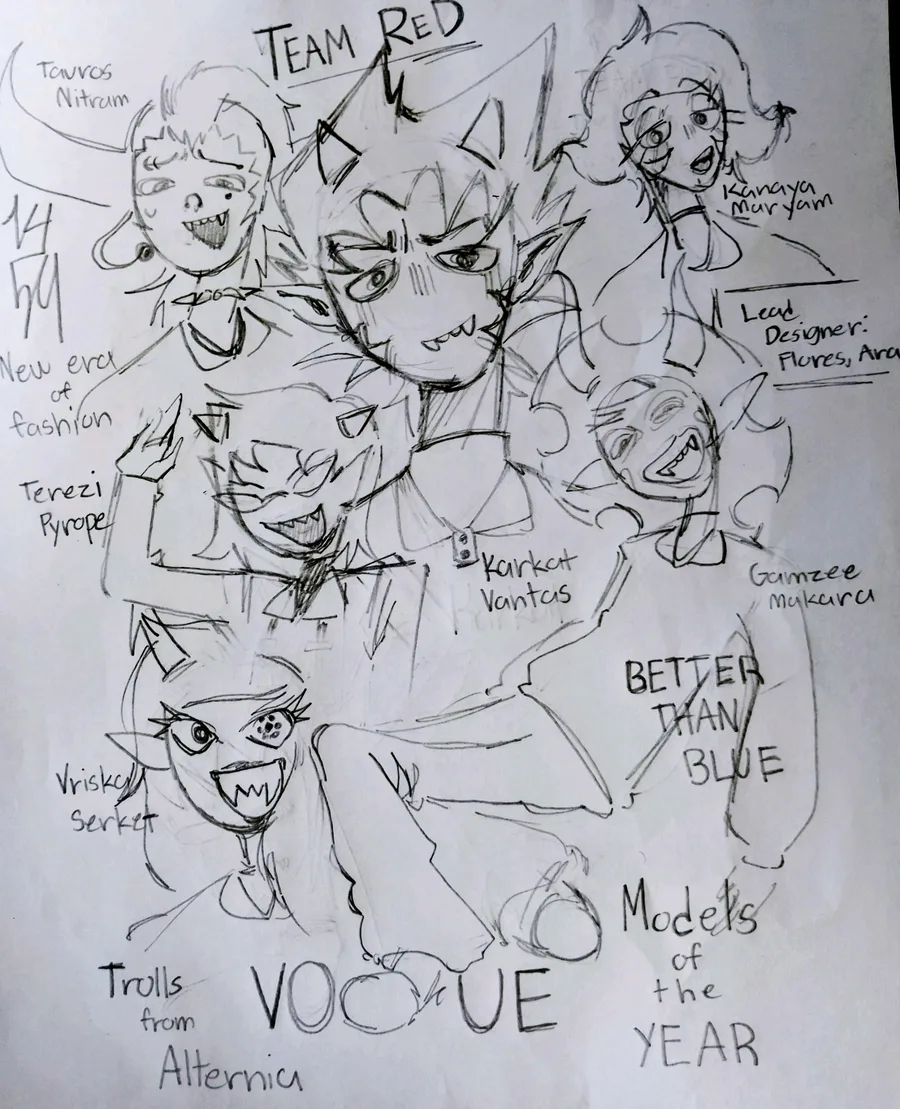 TEAM RED
Tavros
Nitram
Kanaya
Maryam
Lead
Designer:
Flores, Ara
New era
of
fashion
Terezi
Pyrope
Karkat
Vantas
Gamzee
Makara
BETTER
THAN
BLUE
Vriska
Serket
Models
of
the
YEAR
VOGUE
Trolls
from
Alternia